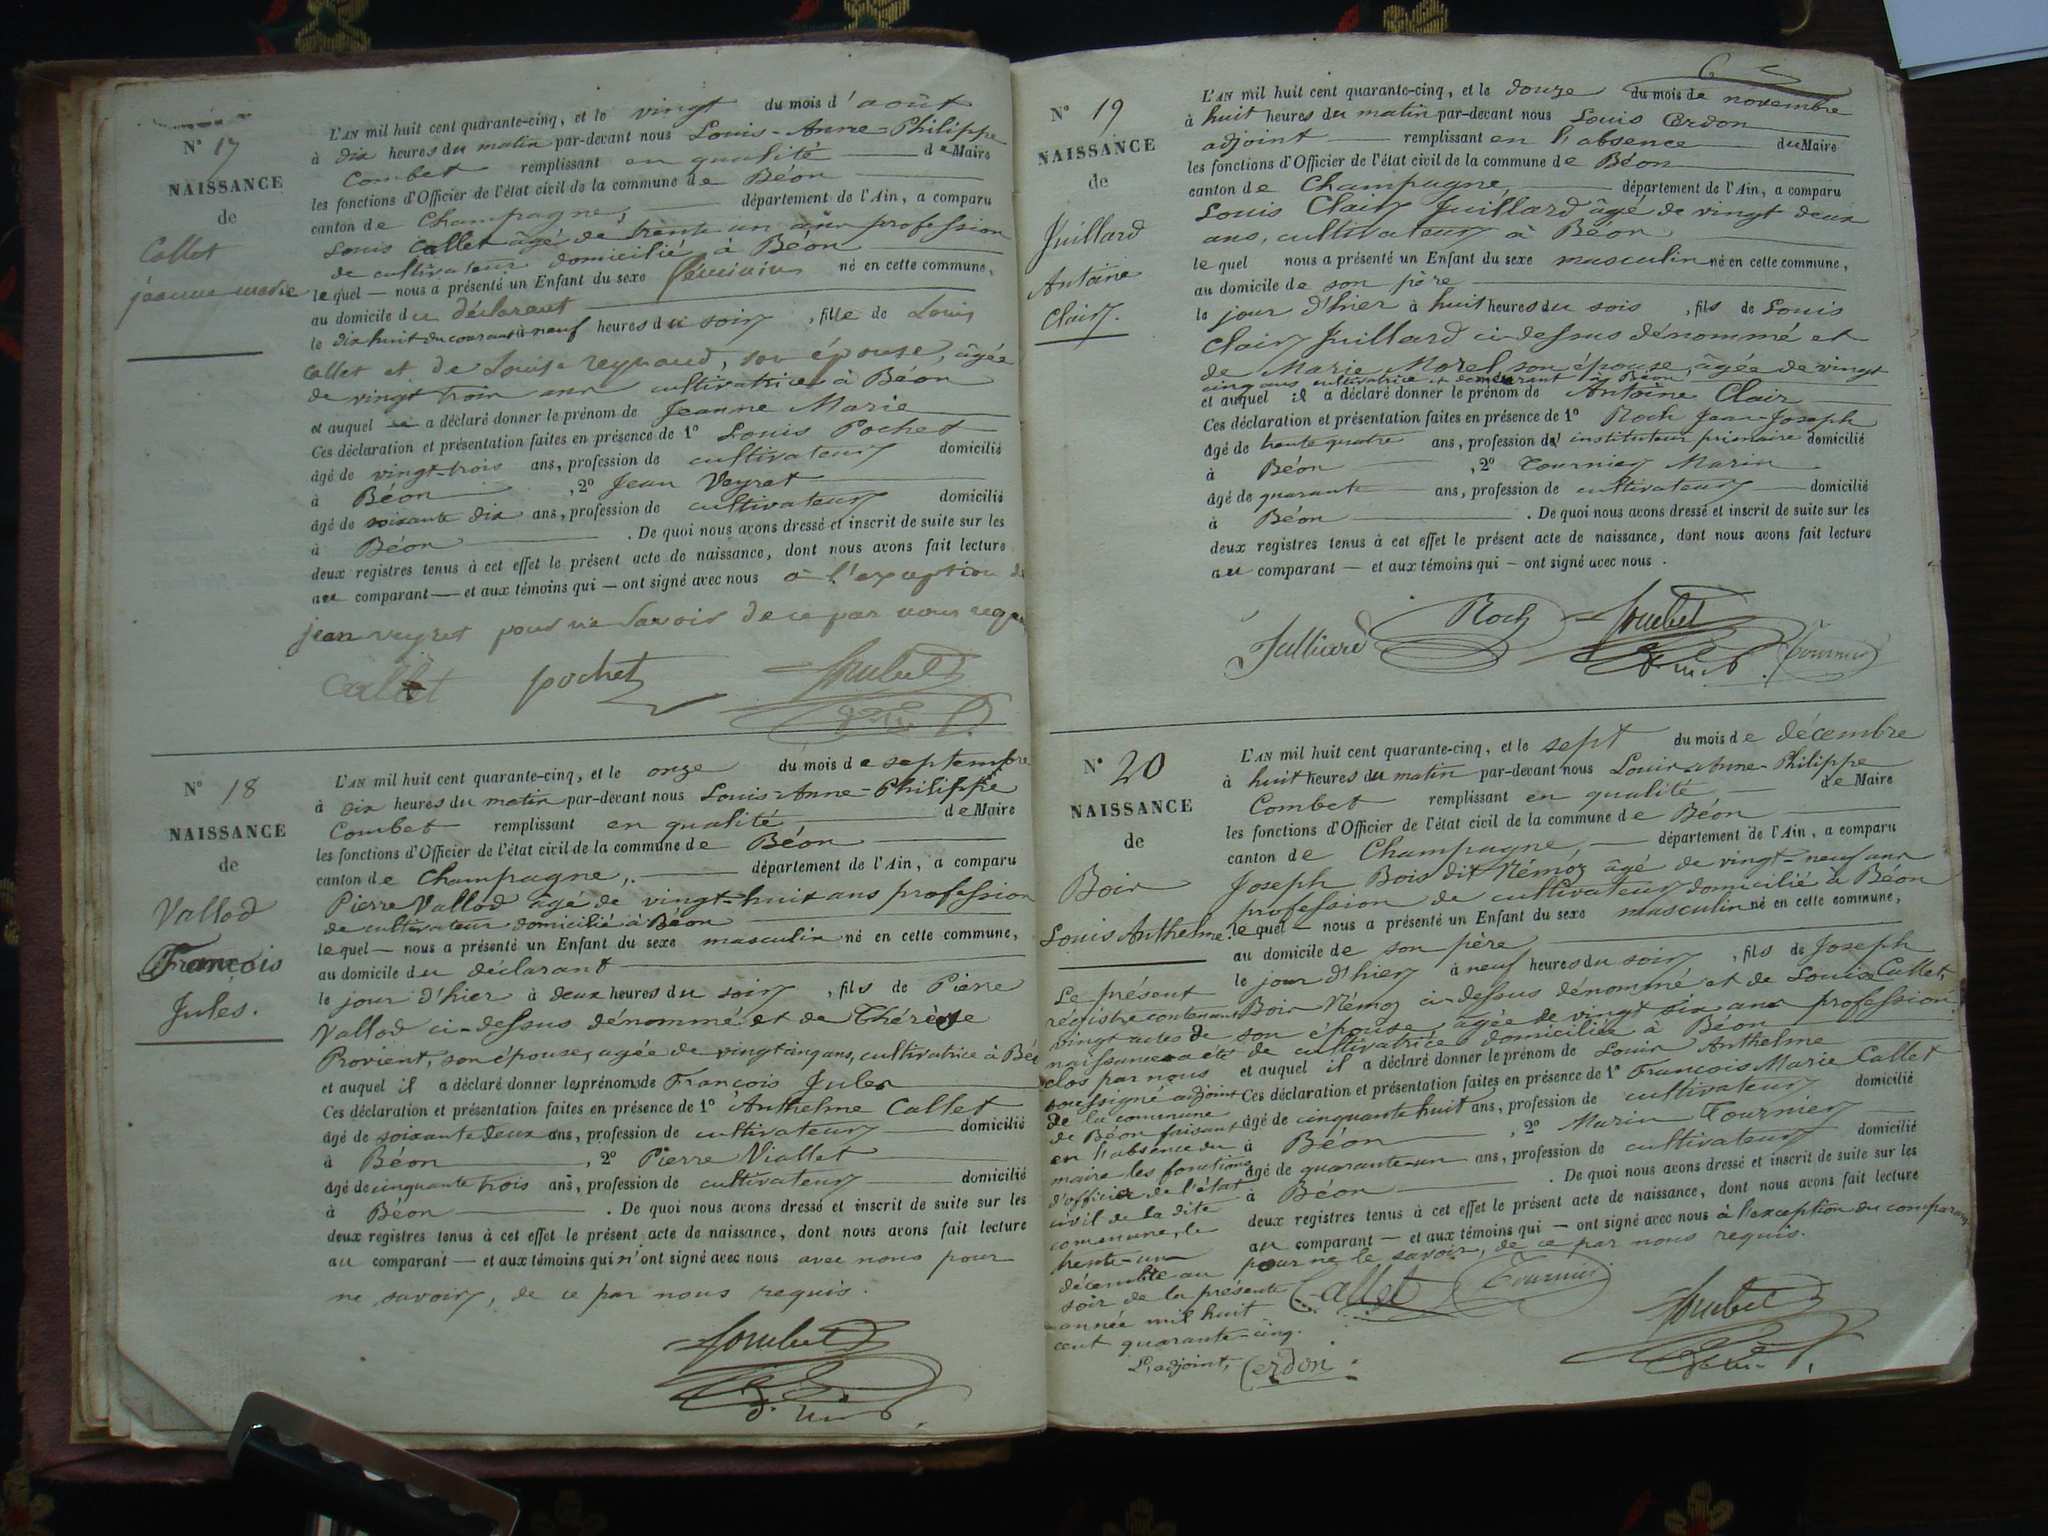 N° 17
NAISSANCE
de
Callet
jeanne marie
L'AN mil huit cent quarante-cinq, et le vingt du mois d'août
à dix heures du matin par-devant nous Louis-Anne-Philippe
Combet remplissant en qualité de Maire
les fonctions d'Officier de l'état civil de la commune de Béon
canton de Champagne, département de l'Ain, a comparu
Louis Callet âgé de trente un ans profession
de cultivateur domicilié à Béon
lequel — nous a présenté un Enfant du sexe féminin né en cette commune,
au domicile du déclarant
le dix huit du courant à neuf heures du soir, fille de Louis
Callet et de Louise reynaud, son épouse, âgée
de vingt trois ans cultivatrice à Béon
et auquel a déclaré donner le prénom de Jeanne Marie
Ces déclaration et présentation faites en présence de 1° Louis Pochet
âgé de vingt-trois ans, profession de cultivateur domicilié
à Béon, 2° Jean Veyret
âgé de soixante dix ans, profession de cultivateur domicilié
à Béon. De quoi nous avons dressé et inscrit de suite sur les
deux registres tenus à cet effet le présent acte de naissance, dont nous avons fait lecture
au comparant — et aux témoins qui — ont signé avec nous à l'exception de
jean veyret pour ne savoir de ce par nous
Callet pochet
N° 18
NAISSANCE
de
Vallod
François
Jules.
L'AN mil huit cent quarante-cinq, et le onze du mois de septembre
à dix heures du matin par-devant nous Louis-Anne-Philippe
Combet remplissant en qualité de Maire
les fonctions d'Officier de l'état civil de la commune de Béon
canton de Champagne, département de l'Ain, a comparu
Pierre Vallod âgé de vingt-huit ans profession
de cultivateur domicilié à Béon
lequel — nous a présenté un Enfant du sexe masculin né en cette commune,
au domicile du déclarant
le jour d'hier à deux heures du soir, fils de Pierre
Vallod ci-dessus dénommé et de Thérèse
Provient, son épouse, agée de vingt cinq ans, cultivatrice à Béon
et auquel il a déclaré donner les prénoms de François Jules
Ces déclaration et présentation faites en présence de 1° Anthelme Callet
âgé de soixante deux ans, profession de cultivateur domicilié
à Béon, 2° Pierre Viallet
âgé de cinquante trois ans, profession de cultivateur domicilié
à Béon. De quoi nous avons dressé et inscrit de suite sur les
deux registres tenus à cet effet le présent acte de naissance, dont nous avons fait lecture
au comparant — et aux témoins qui n'ont signé avec nous avec nous pour
ne savoir, de ce par nous requis.
6
N° 19
NAISSANCE
de
Juillard
Antoine
Clair.
L'AN mil huit cent quarante-cinq, et le douze du mois de novembre
à huit heures du matin par-devant nous Louis Cerdon
adjoint remplissant en l'absence du Maire
les fonctions d'Officier de l'état civil de la commune de Béon
canton de Champagne, département de l'Ain, a comparu
Louis Clair Juillard âgé de vingt deux
ans, cultivateur à Béon
lequel nous a présenté un Enfant du sexe masculin né en cette commune,
au domicile de son père
le jour d'hier à huit heures du soir, fils de Louis
Clair Juillard ci-dessus dénommé et
de Marie Morel son épouse, âgée de vingt
cinq ans cultivatrice et demeurant à Béon
et auquel il a déclaré donner le prénom de Antoine Clair
Ces déclaration et présentation faites en présence de 1° Roch Jean-Joseph
âgé de trente quatre ans, profession d'instituteur primaire domicilié
à Béon, 2° Tournier Marin
âgé de quarante ans, profession de cultivateur domicilié
à Béon. De quoi nous avons dressé et inscrit de suite sur les
deux registres tenus à cet effet le présent acte de naissance, dont nous avons fait lecture
au comparant — et aux témoins qui — ont signé avec nous.
Julliard Roch Tournier
N° 20
NAISSANCE
de
Bois
Louis Anthelme.
L'AN mil huit cent quarante-cinq, et le sept du mois de décembre
à huit heures du matin par-devant nous Louis-Anne-Philippe
Combet remplissant en qualité de Maire
les fonctions d'Officier de l'état civil de la commune de Béon
canton de Champagne, département de l'Ain, a comparu
Joseph Bois dit Némoz âgé de vingt-neuf ans
profession de cultivateur domicilié à Béon
lequel — nous a présenté un Enfant du sexe masculin né en cette commune,
au domicile de son père
le jour d'hier à neuf heures du soir, fils de Joseph
Bois Némoz ci-dessus dénommé et de Louise Callet,
son épouse, âgée de vingt six ans profession
de cultivatrice domiciliée à Béon
et auquel il a déclaré donner le prénom de Louis Anthelme
Ces déclaration et présentation faites en présence de 1° François Marie Callet
âgé de cinquante huit ans, profession de cultivateur domicilié
à Béon, 2° Marin Tournier
âgé de quarante-un ans, profession de cultivateur domicilié
à Béon. De quoi nous avons dressé et inscrit de suite sur les
deux registres tenus à cet effet le présent acte de naissance, dont nous avons fait lecture
au comparant — et aux témoins qui — ont signé avec nous à l'exception du comparant
pour ne le savoir, de ce par nous requis.
Callet Tournier
Le présent
régistre contenant
vingt actes de
naissances a été
clos par nous
soussigné adjoint
de la commune
de Béon faisant
en l'absence du
maire les fonctions
d'officier de l'état
civil de la dite
commune, le
trente-un
décembre au
soir de la présente
année mil huit
cent quarante-cinq.
L'adjoint, Cerdon.